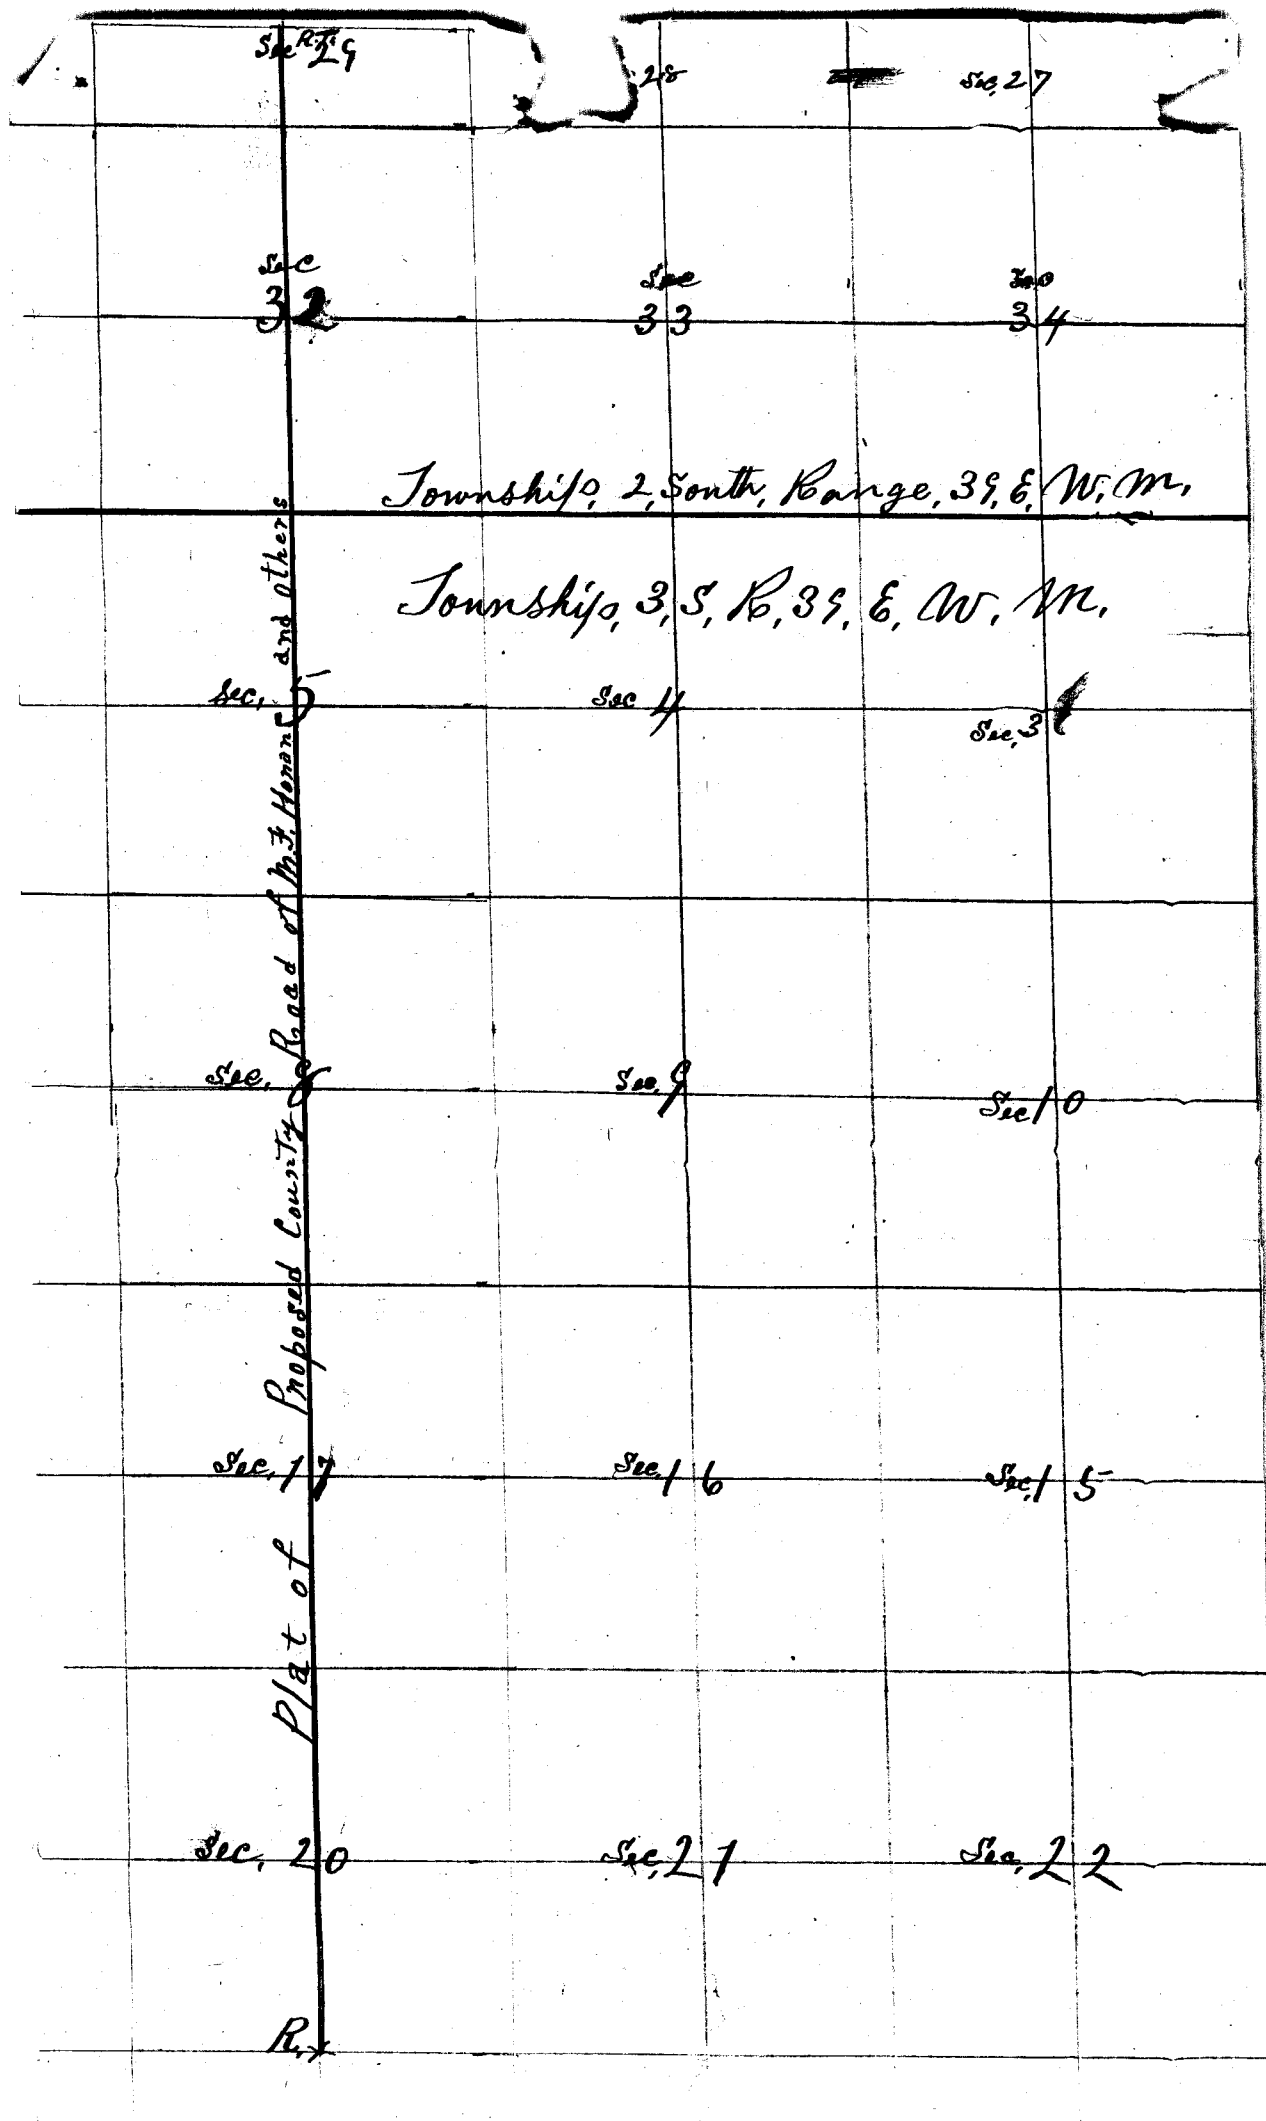 Sec 29
28
Sec, 27
Sec
32
Sec
33
Sec
34
Township, 2, South, Range, 39, E, W, M,
Township, 3, S, R, 39, E, W, M,
Sec, 5
Sec 4
Sec, 3
Sec, 8
Sec, 9
Sec 10
Sec, 17
Sec, 16
Sec, 15
Sec, 20
Sec, 21
Sec, 22
Plat of Proposed County Road of M.F. Honan and others
R,